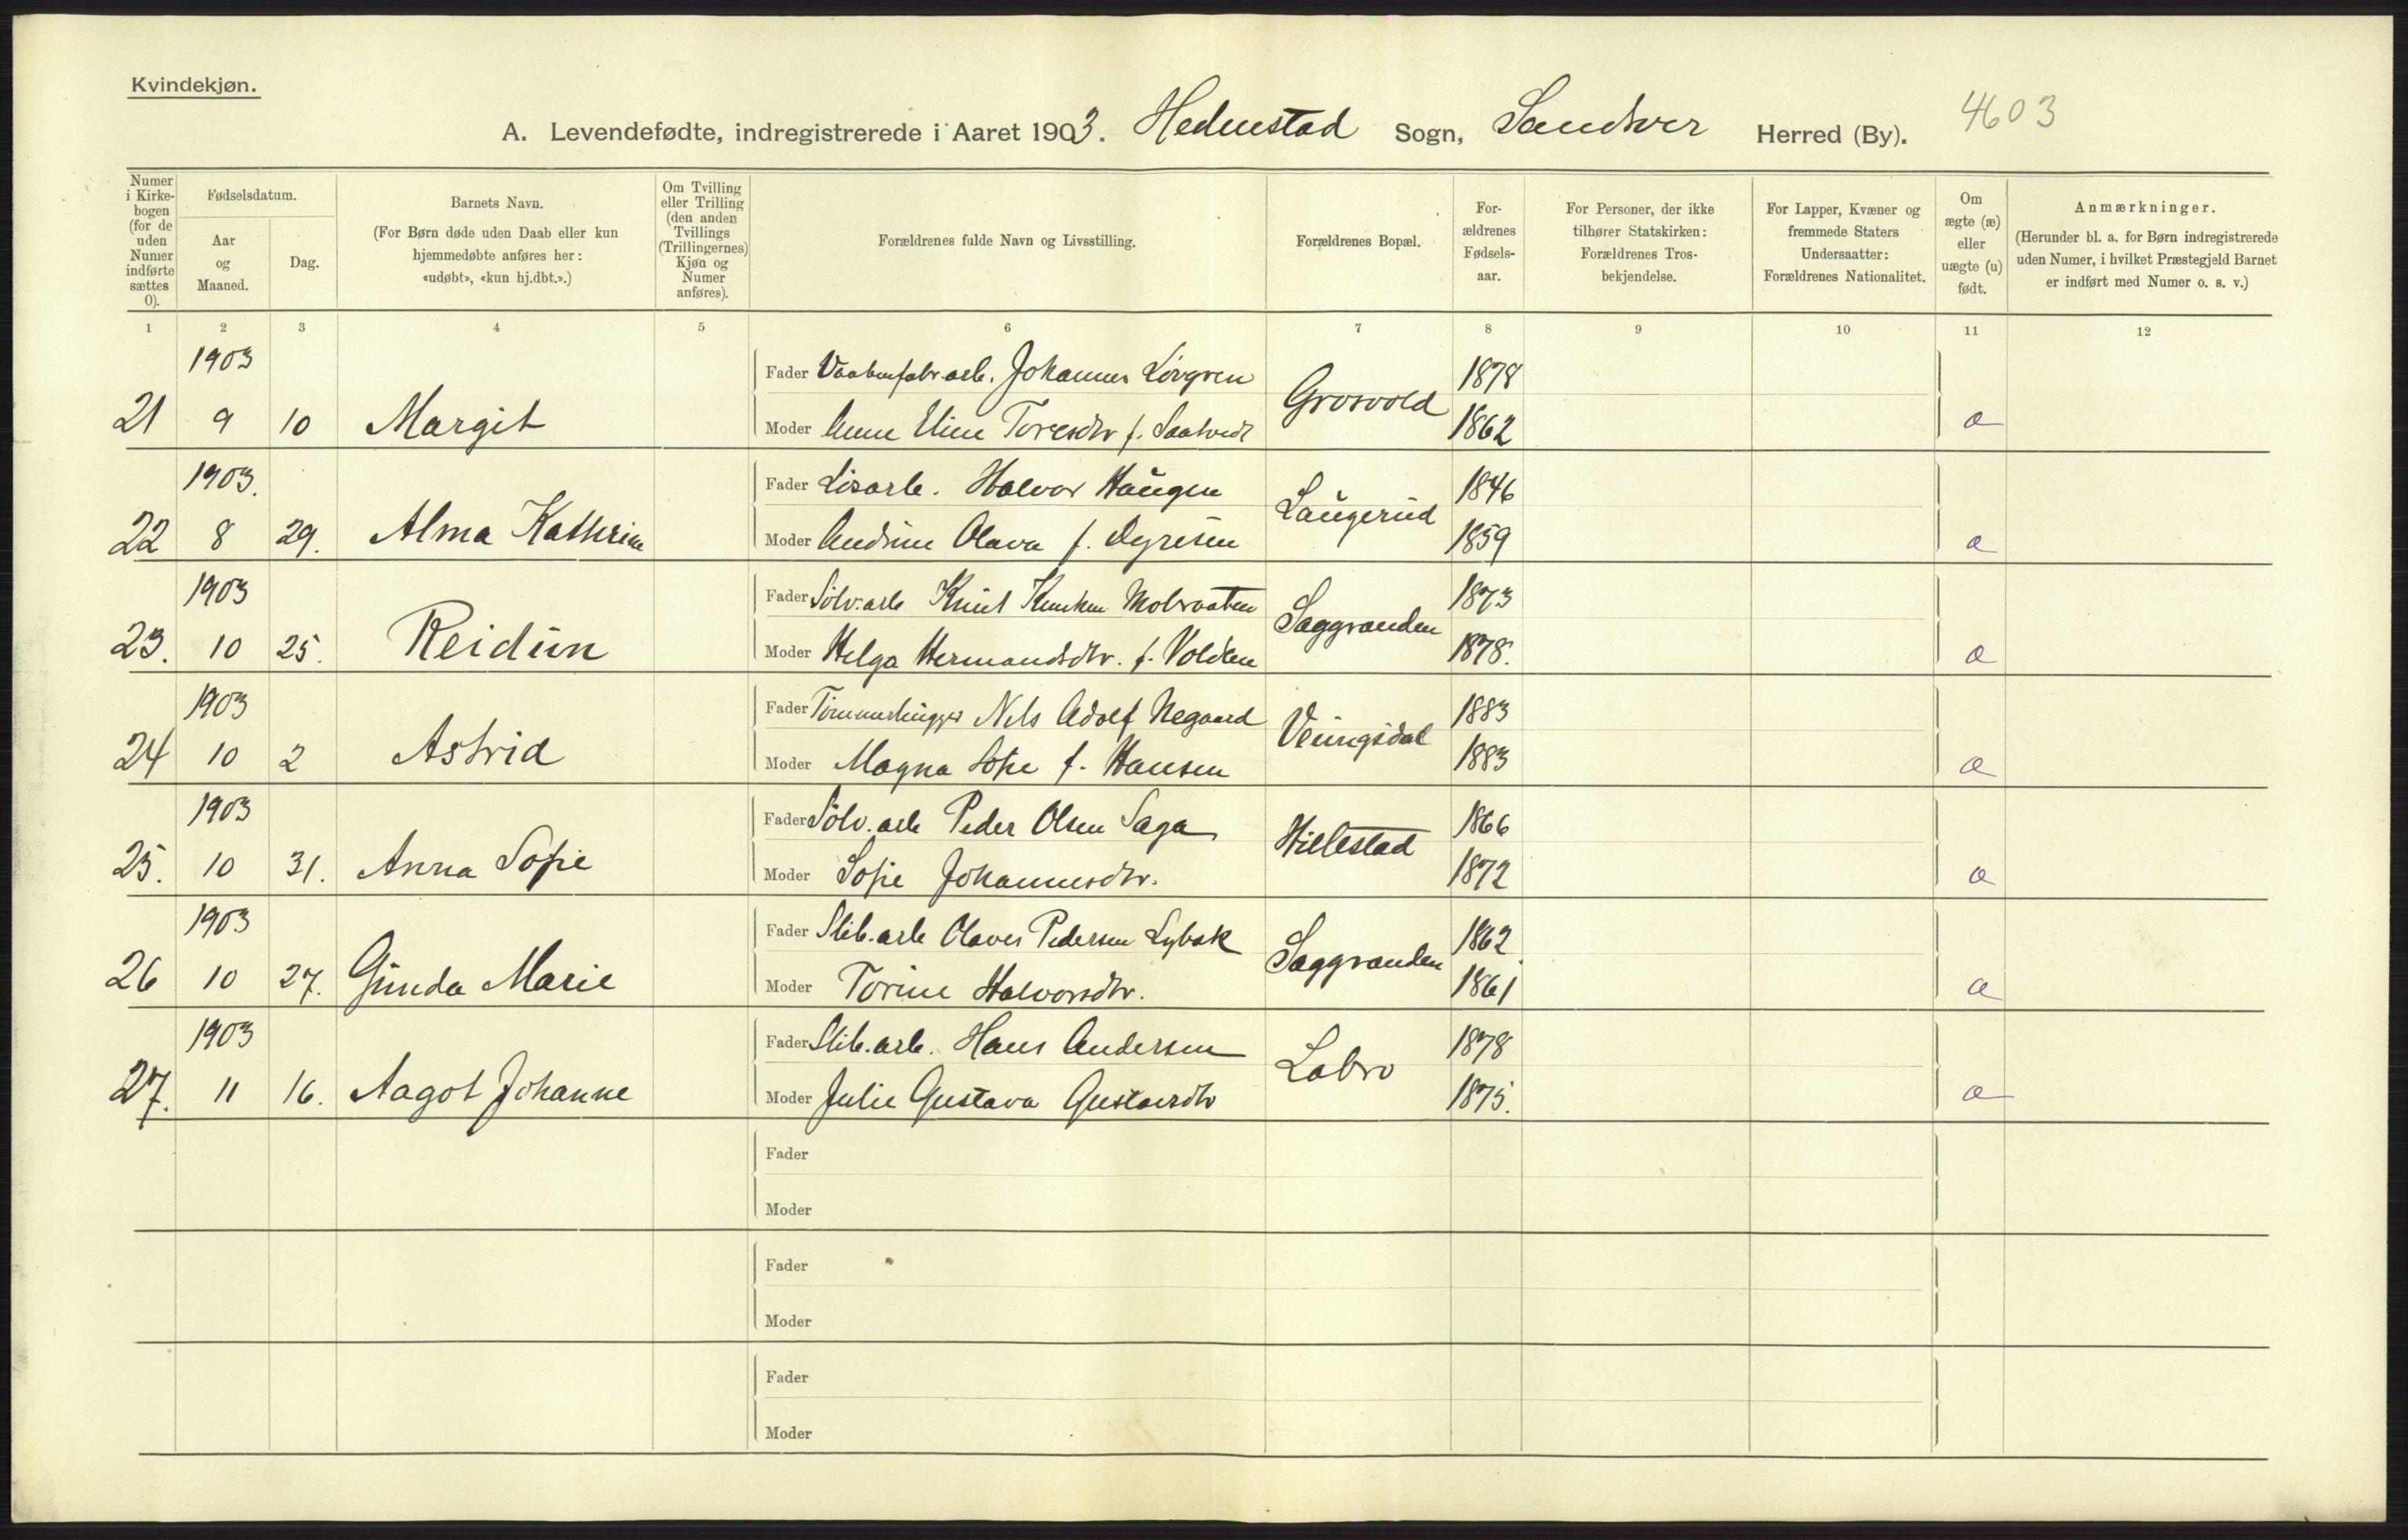 Kvindekjøn.
A. Levendefødte, indregistrerede i Aaret 1903. Hedenstad Sogn, Sandsver Herred (By). 4603
Numer i Kirkebogen (for de uden Numer indførte sættes 0).
Fødselsdatum.
Aar og Maaned.
Dag.
Barnets Navn.
(For Børn døde uden Daab eller kun hjemmedøbte anføres her: «udøbt», «kun hj.dbt.».)
Om Tvilling eller Trilling (den anden Tvillings (Trillingernes) Kjøn og Numer anføres).
Forældrenes fulde Navn og Livsstilling.
Forældrenes Bopæl.
Forældrenes Fødselsaar.
For Personer, der ikke tilhører Statskirken: Forældrenes Trosbekjendelse.
For Lapper, Kvæner og fremmede Staters Undersaatter: Forældrenes Nationalitet.
Om ægte (æ) eller uægte (u) født.
Anmærkninger.
(Herunder bl. a. for Børn indregistrerede uden Numer, i hvilket Præstegjeld Barnet er indført med Numer o. s. v.)
1 2 3 4 5 6 7 8 9 10 11 12
1903 Fader Vaabenfabr.arb. Johannes Løvgren Grosvold 1878
21 9 10 Margit Moder Anne Eline Toresdtr f. Saatvedt 1862 æ
1903. Fader Løsarb. Halvor Haugen Laugerud 1846
22 8 29. Alma Kathrine Moder Andrine Olava f. Dyresen 1859 æ
1903 Fader Sølv.arb Knut Knutsen Mobraaten Saggranden 1873
23. 10 25. Reidun Moder Helga Hermandsdtr. f. Volden 1878. æ
1903 Fader Tømmerhugger Nils Adolf Negaard Veungsdal 1883
24 10 2 Astrid Moder Magna Sofie f. Hansen 1883 æ
1903 Fader Sølv.arb Peder Olsen Saga Hillestad 1866
25. 10 31. Anna Sofie Moder Sofie Johannesdtr. 1872 æ
1903 Fader Slib.arb Olaves Pedersen Lybæk Saggranden 1862
26 10 27. Gunda Marie Moder Torine Halvorsdtr. 1861 æ
1903 Fader Slib.arb. Hans Andersen Labro 1878
27. 11 16. Aagot Johanne Moder Julie Gustava Gustavsdtr 1875. æ
Fader
Moder
Fader
Moder
Fader
Moder